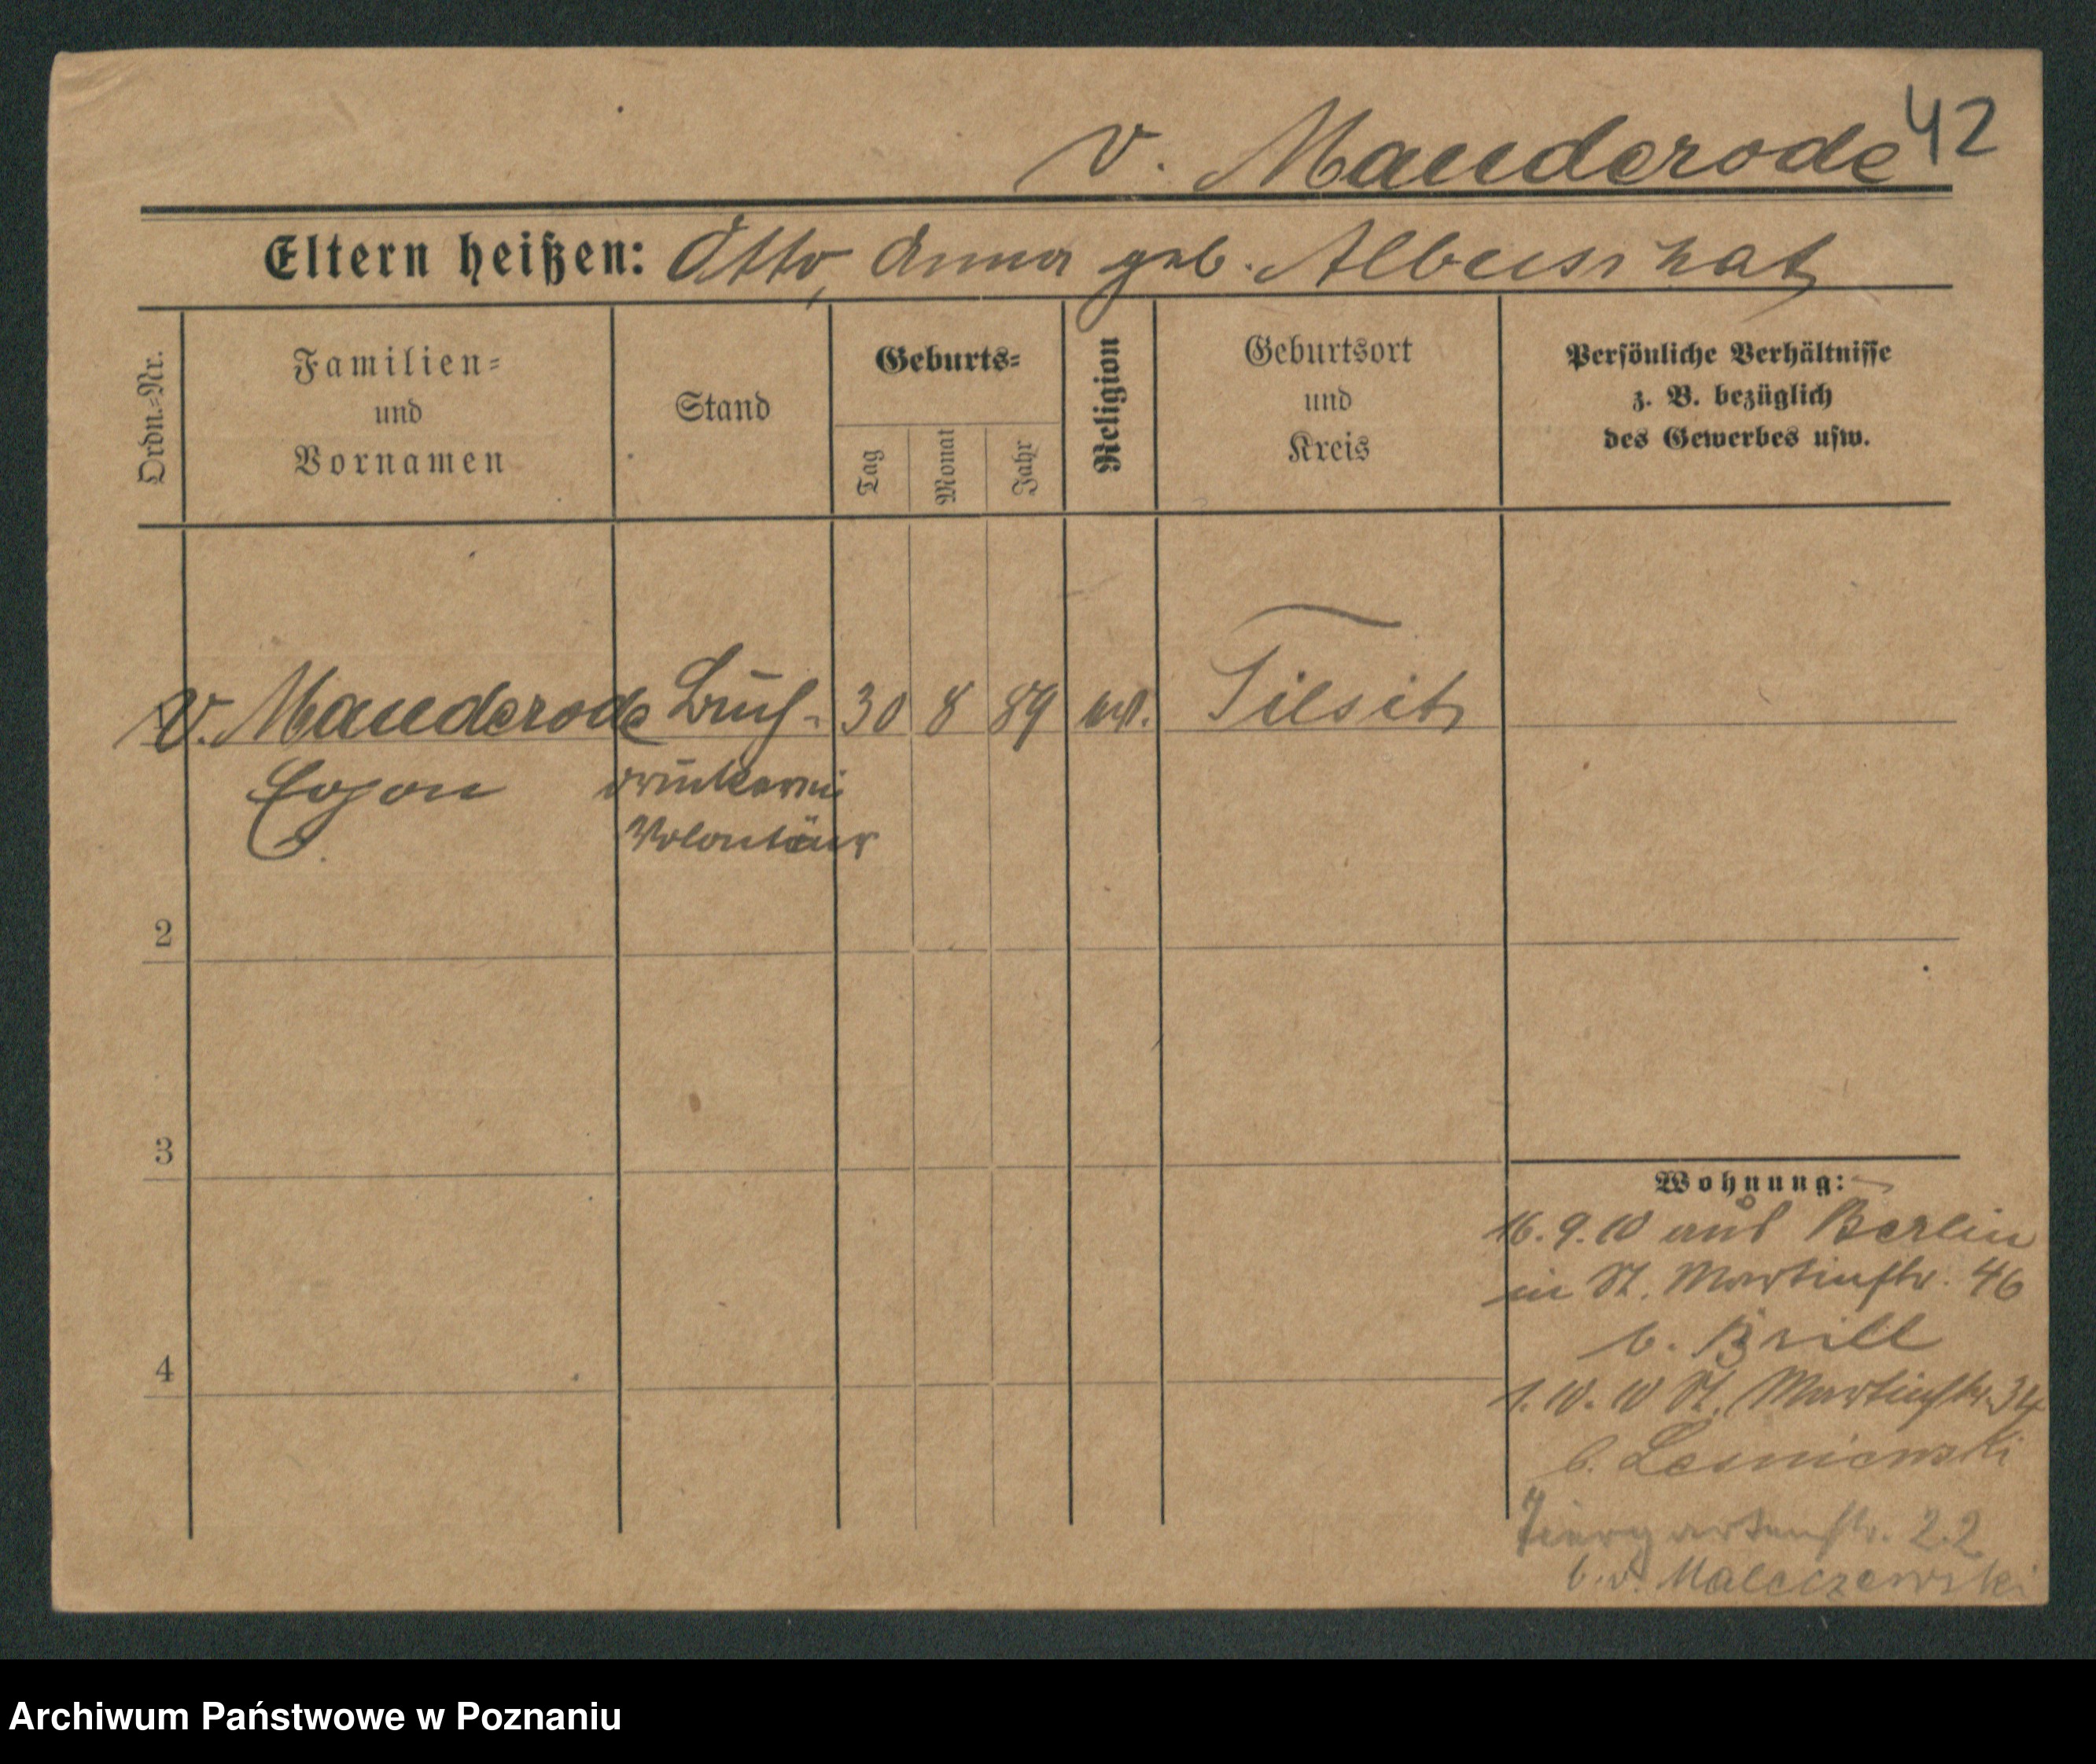 42
v. Manderode
Eltern heißen: Otto, Anna geb. Albuszhat
Ordn.-Nr.
Familien=
und
Vornamen
Stand
Geburts=
Tag
Monat
Jahr
Religion
Geburtsort
und
Kreis
Persönliche Verhältnisse
z. B. bezüglich
des Gewerbes usw.
v. Manderode Buch- 30 8 89 Tilsit
Egon druckerei
Volontär
2
3
4
Wohnung:
16. 9. 10 aus Berlin
in St. Martinstr. 46
b. Brill
1. 10. 10 St. Martinstr. 34
b. Lesniewski
Tiergartenstr. 2.2
b. v. Maleczewski
Archiwum Państwowe w Poznaniu